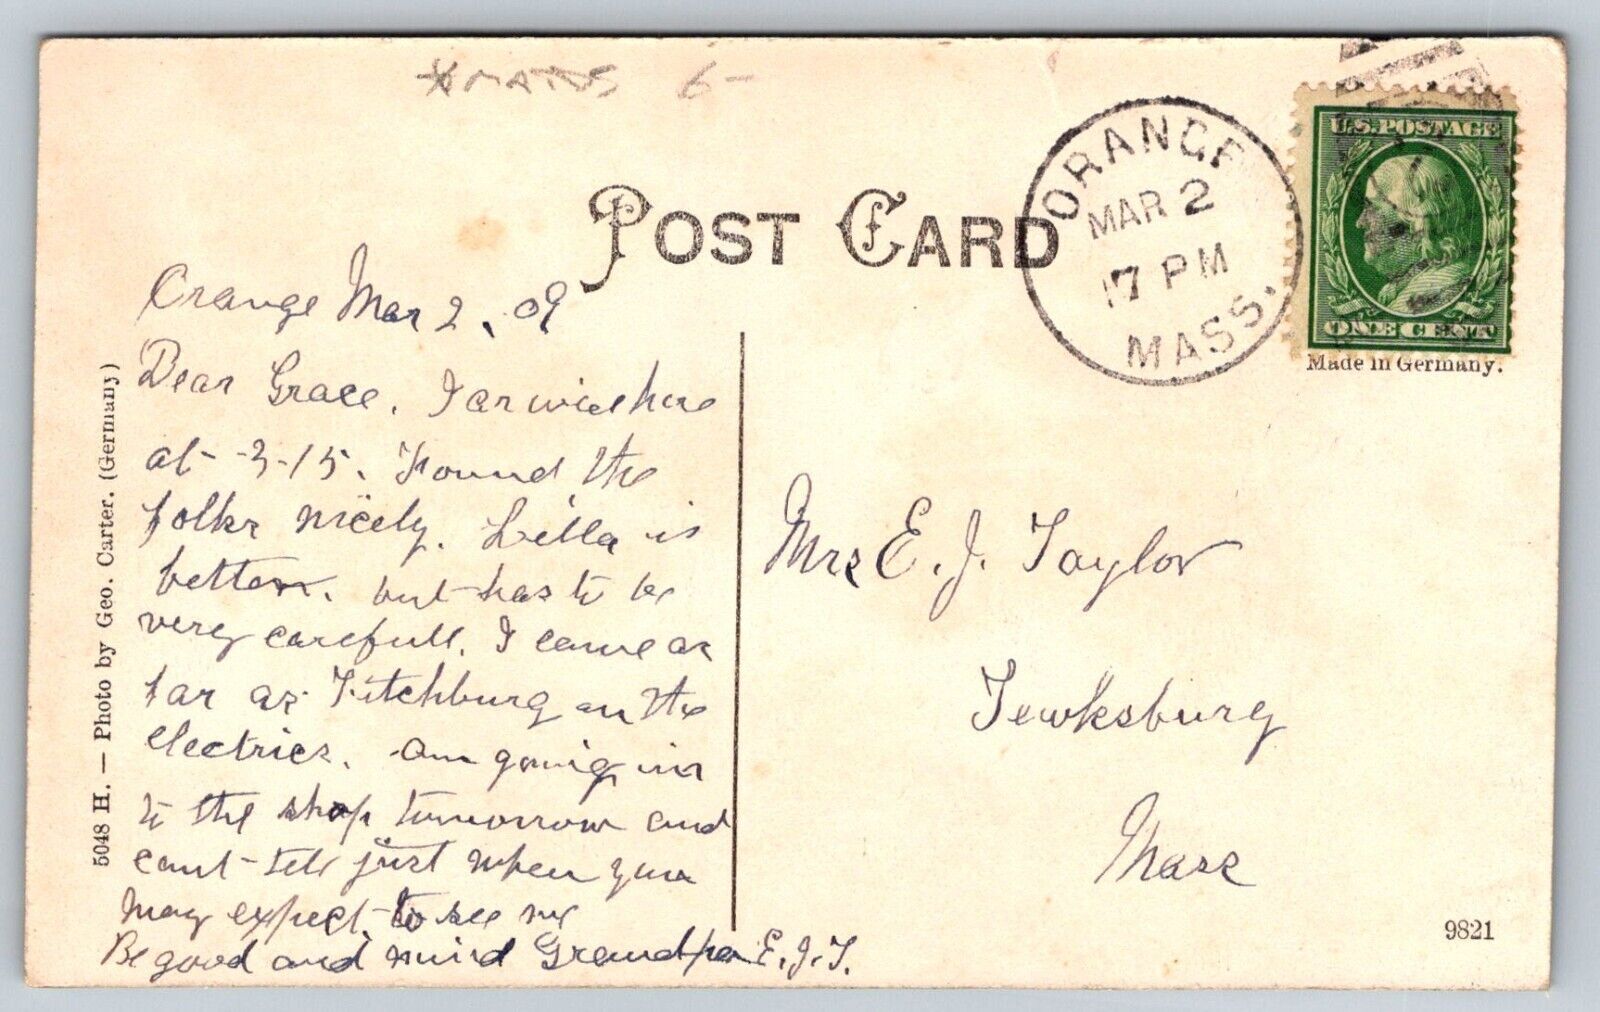 6-
POST CARD
ORANGE
MAR 2
7 PM
MASS.
U.S. POSTAGE
ONE CENT
Made in Germany.
Orange Mar 2, 09
Dear Grace. I arwied here
at 3-15. Found the
folks nicely. Lilla is
better. but has to be
very carefull. I came as
far as Fitchburg on the
electrics. am going in
to the shop tomorrow and
cant tell just when you
may expect to see me
Be good and mind Grandpa E. J. T.
Mrs E. J. Taylor
Tewksburg
Mass
5048 H. — Photo by Geo. Carter. (Germany)
9821